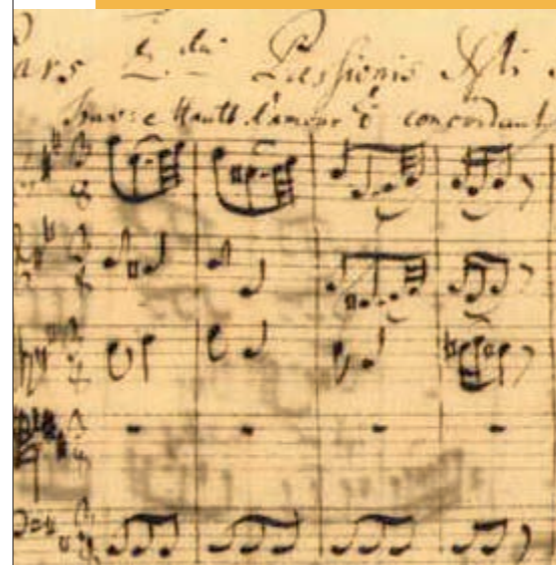 ars 2. da Passionis Xsti
Trav: e Hautb d'amour è concordant